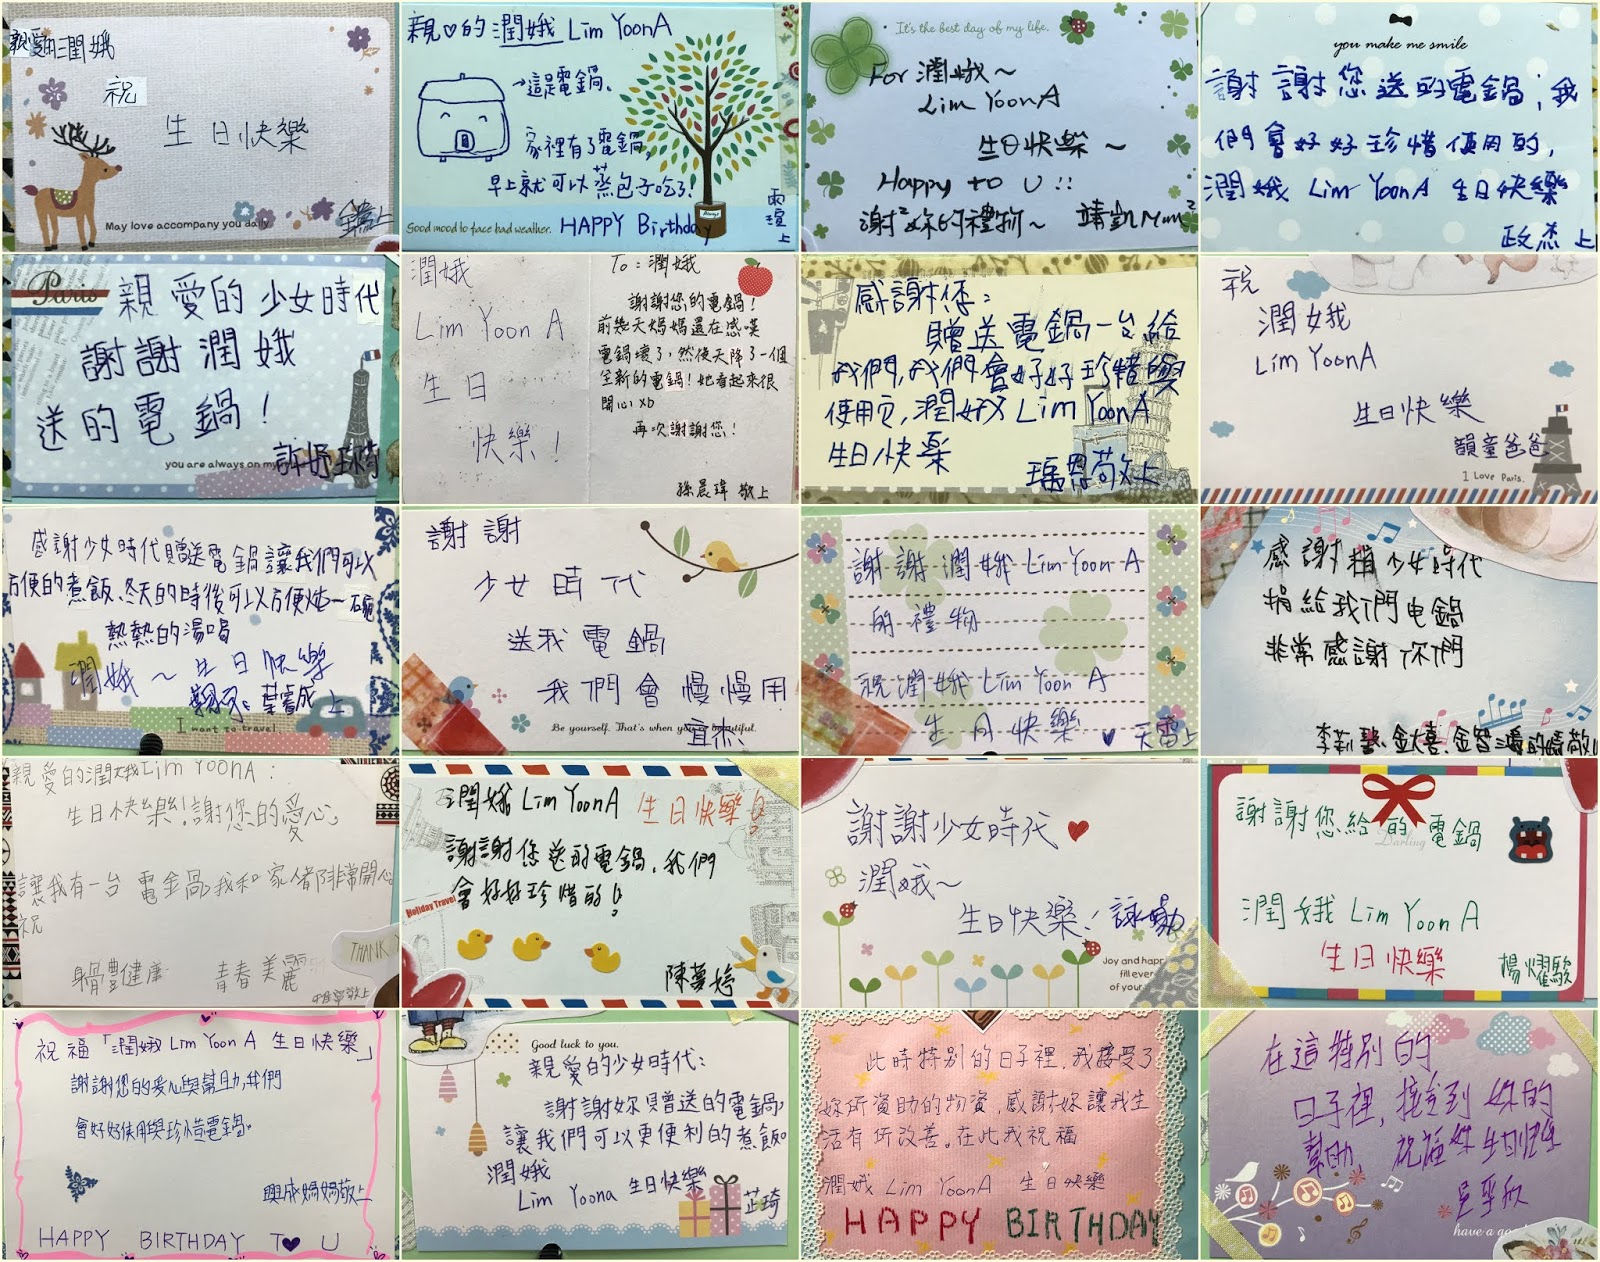 親愛的潤娥
祝
生日快樂
May love accompany you daily
親♡的潤娥 Lim YoonA
→這是電鍋、
家裡有了電鍋,
早上就可以蒸包子吃了!
Good mood to face bad weather.
HAPPY Birthday
雨瑄上
It's the best day of my life.
For 潤娥～
Lim YoonA
生日快樂～
Happy to U!!
謝²妳的禮物～
靖凱
you make me smile
謝謝您送的電鍋;我
們會好好珍惜使用的,
潤娥 Lim YoonA 生日快樂
政杰上
Paris
親愛的少女時代
謝謝潤娥
送的電鍋!
you are always on my
潤娥
Lim Yoon A
生日
快樂!
To:潤娥
謝謝您的電鍋!
前幾天媽媽還在感嘆
電鍋壞了,然後天降了一個
全新的電鍋!她看起來很
開心XD
再次謝謝您!
孫晨瑋 敬上
感謝您:
贈送電鍋一台給
我們,我們會好好珍惜與
使用它,潤娥 Lim YoonA
生日快樂
瑀恩敬上
祝
潤娥
Lim YoonA
生日快樂
韻童爸爸
I Love Paris.
感謝少女時代贈送電鍋讓我們可以
方便的煮飯、冬天的時後可以方便燉一碗
熱熱的湯喝
潤娥～生日快樂
上
I want to travel
謝謝
少女時代
送我電鍋
我們會慢慢用
Be yourself. That's when you're beautiful.
宜杰
謝謝潤娥 Lim Yoon A
的禮物
祝潤娥 Lim Yoon A
生日快樂
♥天雷上
感謝 少女時代
捐給我們电鍋
非常感謝你們
親愛的潤娥Lim YOONA:
生日快樂!謝您的愛心
讓我有一台電鍋,我和家人都非常開心
祝
身體健康 青春美麗
敬上
THANK
潤娥 Lim YoonA 生日快樂!
謝謝您送的電鍋,我們
會好好珍惜的!
Holiday Travel
陳夢婷
謝謝少女時代♥
潤娥～
生日快樂!詠勛
Joy and happ
fill ever
of your
謝謝您給的電鍋
Darling
潤娥 Lim Yoon A
生日快樂
楊燿駿
祝福「潤娥 Lim Yoon A 生日快樂」
謝謝您的愛心與幫助,我們
會好好使用與珍惜電鍋。
興成媽媽敬上
HAPPY BIRTHDAY T♥ U
Good luck to you.
親愛的少女時代:
謝謝妳贈送的電鍋,
讓我們可以更便利的煮飯。
潤娥
Lim Yoona 生日快樂
芷琦
此時特別的日子裡,我接受了
妳所資助的物資,感謝妳讓我生
活有所改善。在此我祝福
潤娥 Lim YoonA 生日快樂
HAPPY BIRTHDAY
在這特別的
日子裡,接受到妳的
幫助 祝福妳生日快樂
have a go